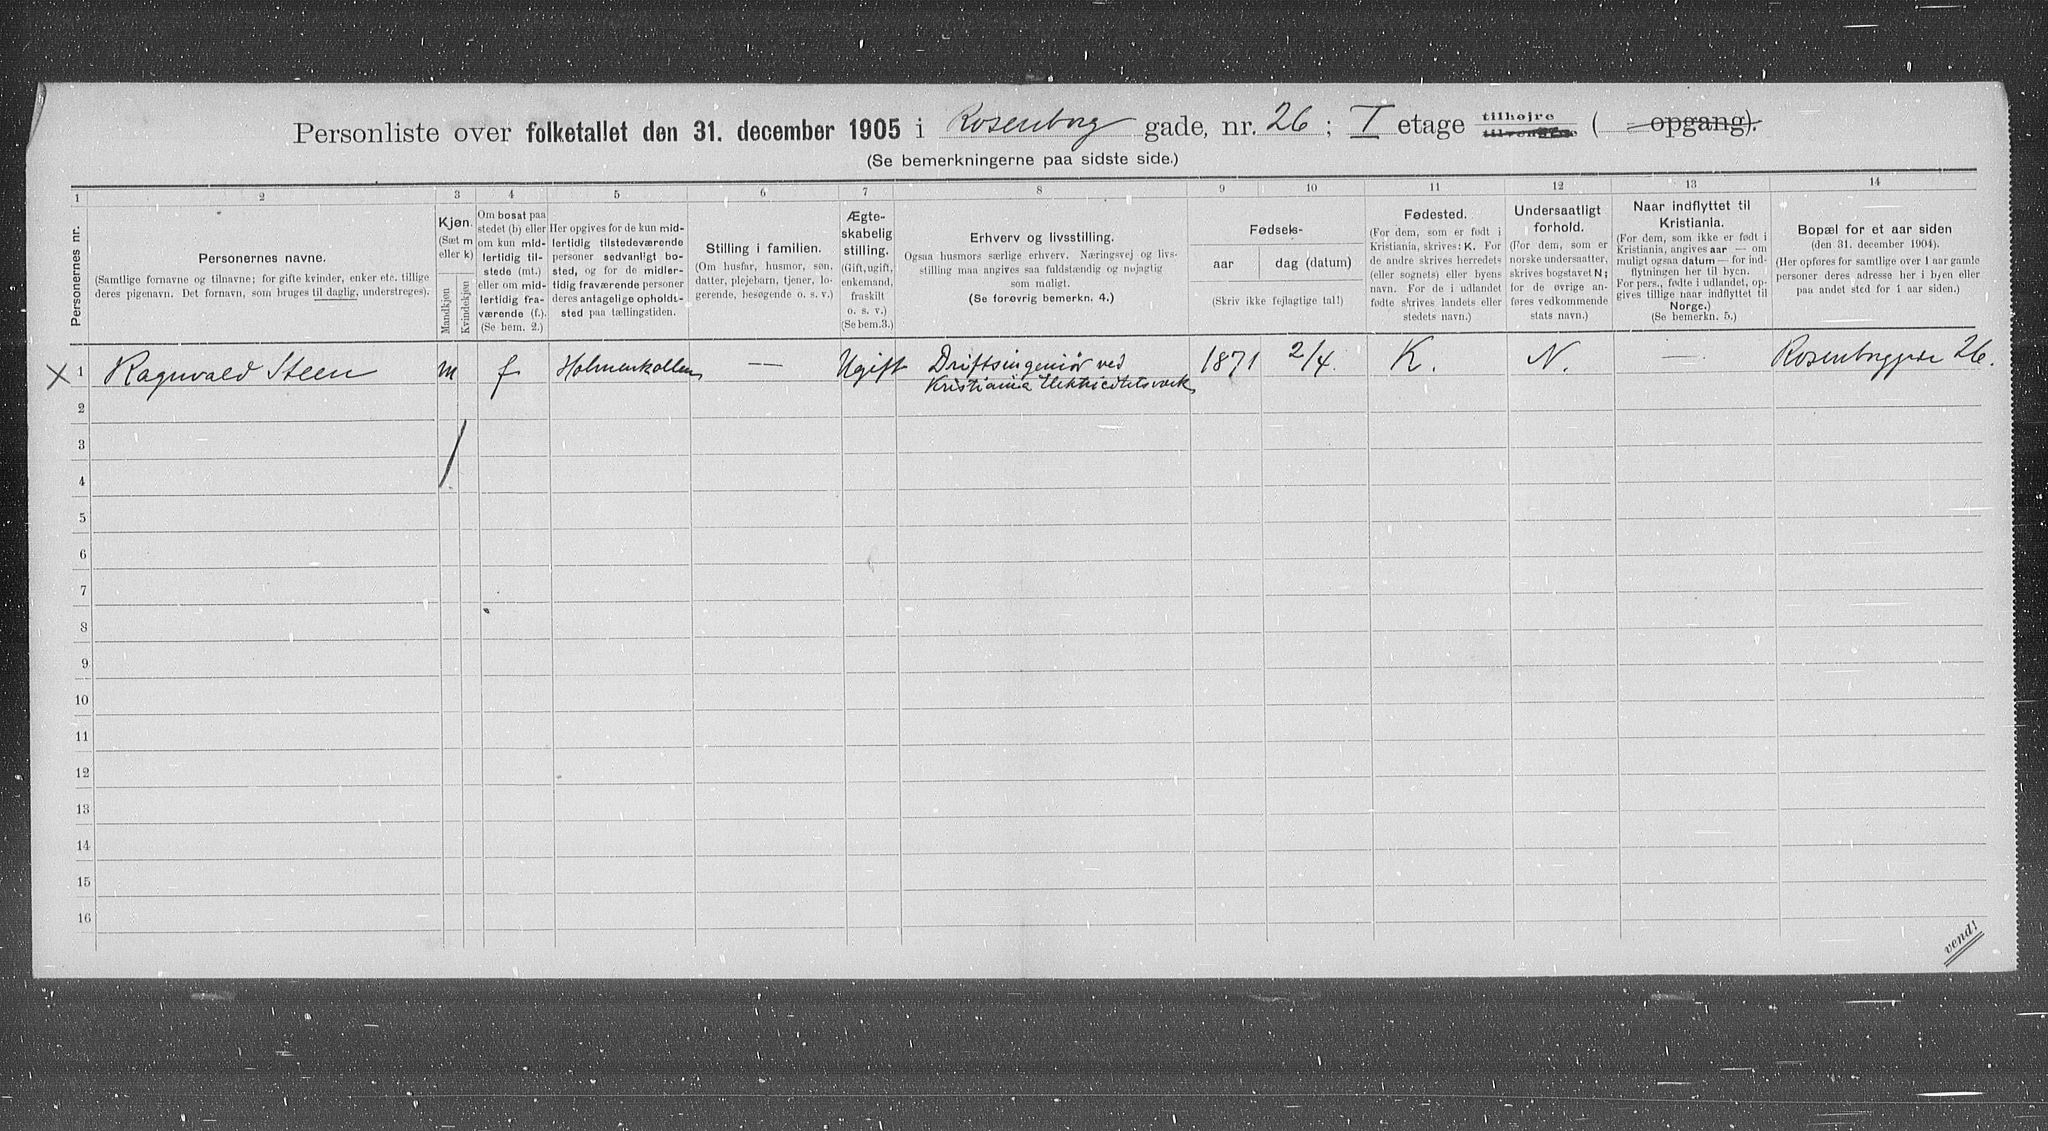 Personliste over folketallet den 31. december 1905 i Rosenborg gade, nr. 26; I etage tilhøjre tilvenstre ( opgang).
(Se bemerkningerne paa sidste side.)
1 2 3 4 5 6 7 8 9 10 11 12 13 14
Personernes nr.
Personernes navne.
(Samtlige fornavne og tilnavne; for gifte kvinder, enker etc. tillige
deres pigenavn. Det fornavn, som bruges til daglig, understreges).
Kjøn.
(Sæt m
eller k)
Mandkjøn
Kvindekjøn
Om bosat paa
stedet (b) eller
om kun mid-
lertidig til-
stede (mt.)
eller om mid-
lertidig fra-
værende (f.).
(Se bem. 2.)
Her opgives for de kun mid-
lertidig tilstedeværende
personer sedvanligt bo-
sted, og for de midler-
tidig fraværende personer
deres antagelige opholds-
sted paa tællingstiden.
Stilling i familien.
(Om husfar, husmor, søn,
datter, plejebarn, tjener, lo-
gerende, besøgende o. s. v.)
Ægte-
skabelig
stilling.
(Gift, ugift,
enkemand,
fraskilt
o. s. v.)
(Se bem. 3.)
Erhverv og livsstilling.
Ogsaa husmors særlige erhverv. Næringsvej og livs-
stilling maa angives saa fuldstændig og nøjagtig
som muligt.
(Se forøvrig bemerkn. 4.)
Fødsels-
aar
dag (datum)
(Skriv ikke fejlagtige tal!)
Fødested.
(For dem, som er født i
Kristiania, skrives: K. For
de andre skrives herredets
(eller sognets) eller byens
navn. For de i udlandet
fødte skrives landets eller
stedets navn.)
Undersaatligt
forhold.
(For dem, som er
norske undersaatter,
skrives bogstavet N;
for de øvrige an-
føres vedkommende
stats navn.)
Naar indflyttet til
Kristiania.
(For dem, som ikke er født i
Kristiania, angives aar — om
muligt ogsaa datum — for ind-
flytningen her til byen.
For pers., fødte i udlandet, op-
gives tillige naar indflyttet til
Norge.)
(Se bemerkn. 5.)
Bopæl for et aar siden
(den 31. december 1904).
(Her opføres for samtlige over 1 aar gamle
personer deres adresse her i byen eller
paa andet sted for 1 aar siden.)
X 1 Ragnvald Steen m f Holmenkollen — Ugift Driftsingeniør ved 1871 2/4. K. N. — Rosenborggade 26.
Kristiania Elektricitetsverk
2
3
4
5
6
7
8
9
10
11
12
13
14
15
16
vend!